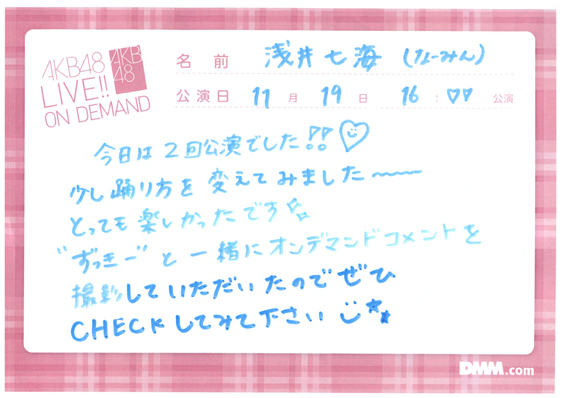 AKB48
LIVE!!
ON DEMAND
AKB
48
名前 浅井七海 (なーみん)
公演日 11月 19日 16:♡♡ 公演
今日は2回公演でした!!♡
少し踊り方を変えてみました〜
とっても楽しかったです
"ずっきー"と一緒にオンデマンドコメントを
撮影していただいたのでぜひ
CHECKしてみて下さい
DMM.com